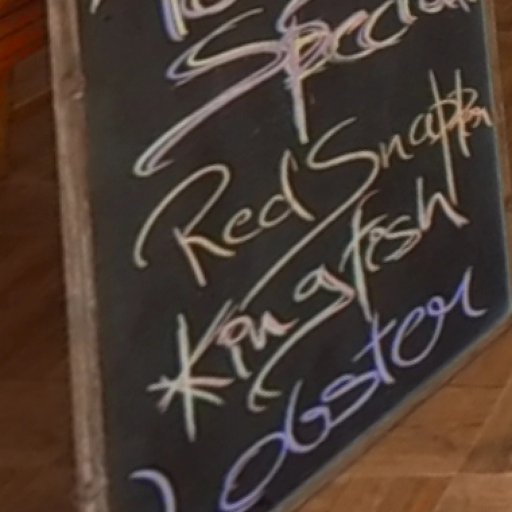 Special
Red Snapper
Kingfish
Lobster